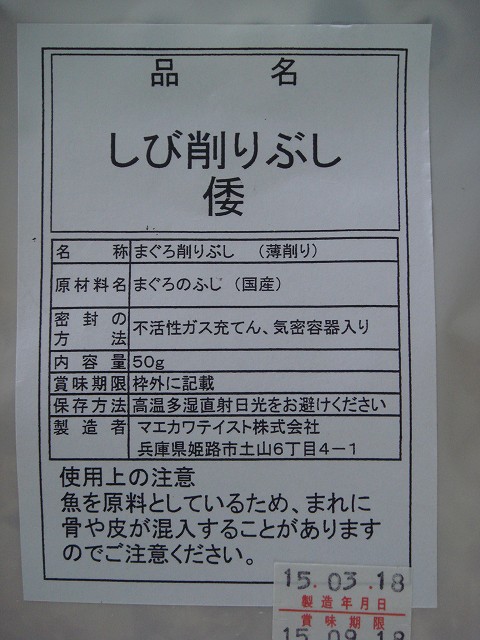 品 名
しび削りぶし
倭
名 称 まぐろ削りぶし （薄削り）
原材料名 まぐろのふし（国産）
密封の方法 不活性ガス充てん、気密容器入り
内容量 50g
賞味期限 枠外に記載
保存方法 高温多湿直射日光をお避けください
製造者 マエカワテイスト株式会社
兵庫県姫路市土山6丁目4-1
使用上の注意
魚を原料としているため、まれに
骨や皮が混入することがあります
のでご注意ください。
15.03.18
製造年月日
賞味期限
15.09.18